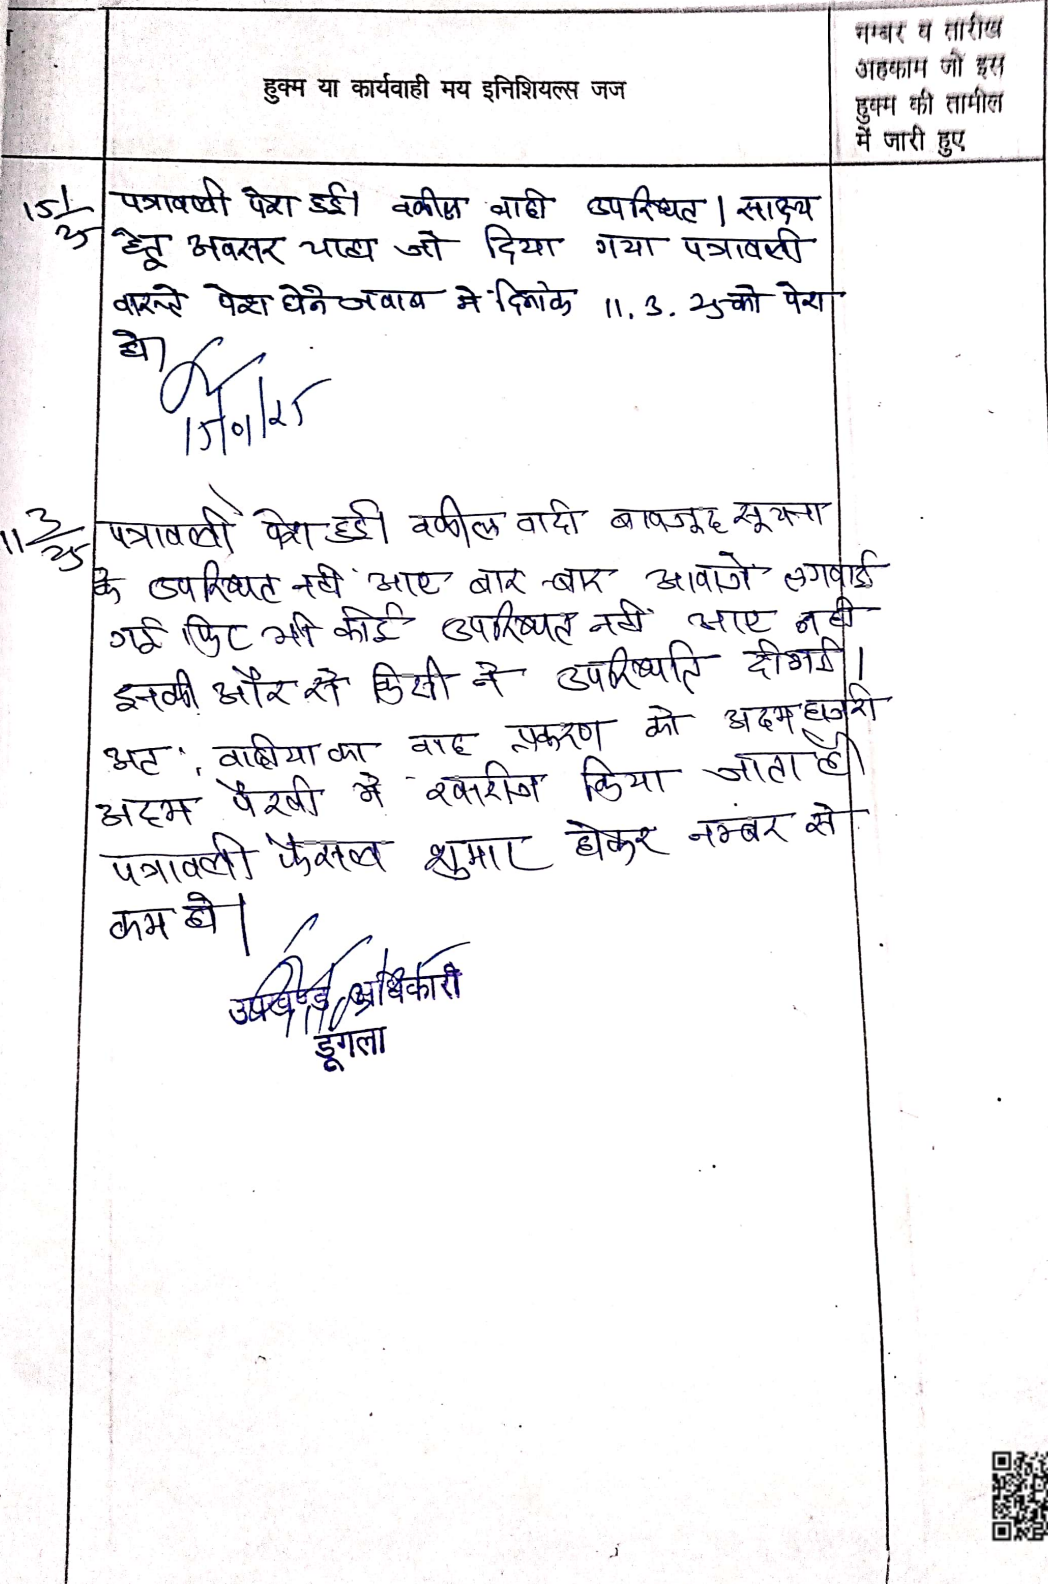 हुक्म या कार्यवाही मय इनिशियल्स जज
नम्बर व तारीख
अहकाम जो इस
हुक्म की तामील
में जारी हुए
15/1/25 पत्रावली पेश हुई। वकील वादी उपस्थित। साक्ष्य
हेतु अवसर चाहा जो दिया गया पत्रावली
वास्ते पेश होने जवाब में दिनांक 11.3.25 को पेश
हो।
15/01/25
11/3/25 पत्रावली पेश हुई। वकील वादी बावजूद सूचना
के उपस्थित नहीं आए बार-बार आवाजे लगवाई
गई फिर भी कोई उपस्थित नहीं आए न ही
इनकी और से किसी ने उपस्थिति दी गई।
अतः वादीया का वाद प्रकरण को अदम हाजरी
अदम पैरवी में खारीज किया जाता है।
पत्रावली फैसल शुमार होकर नम्बर से
कम हो।
उपखण्ड अधिकारी
डूंगला